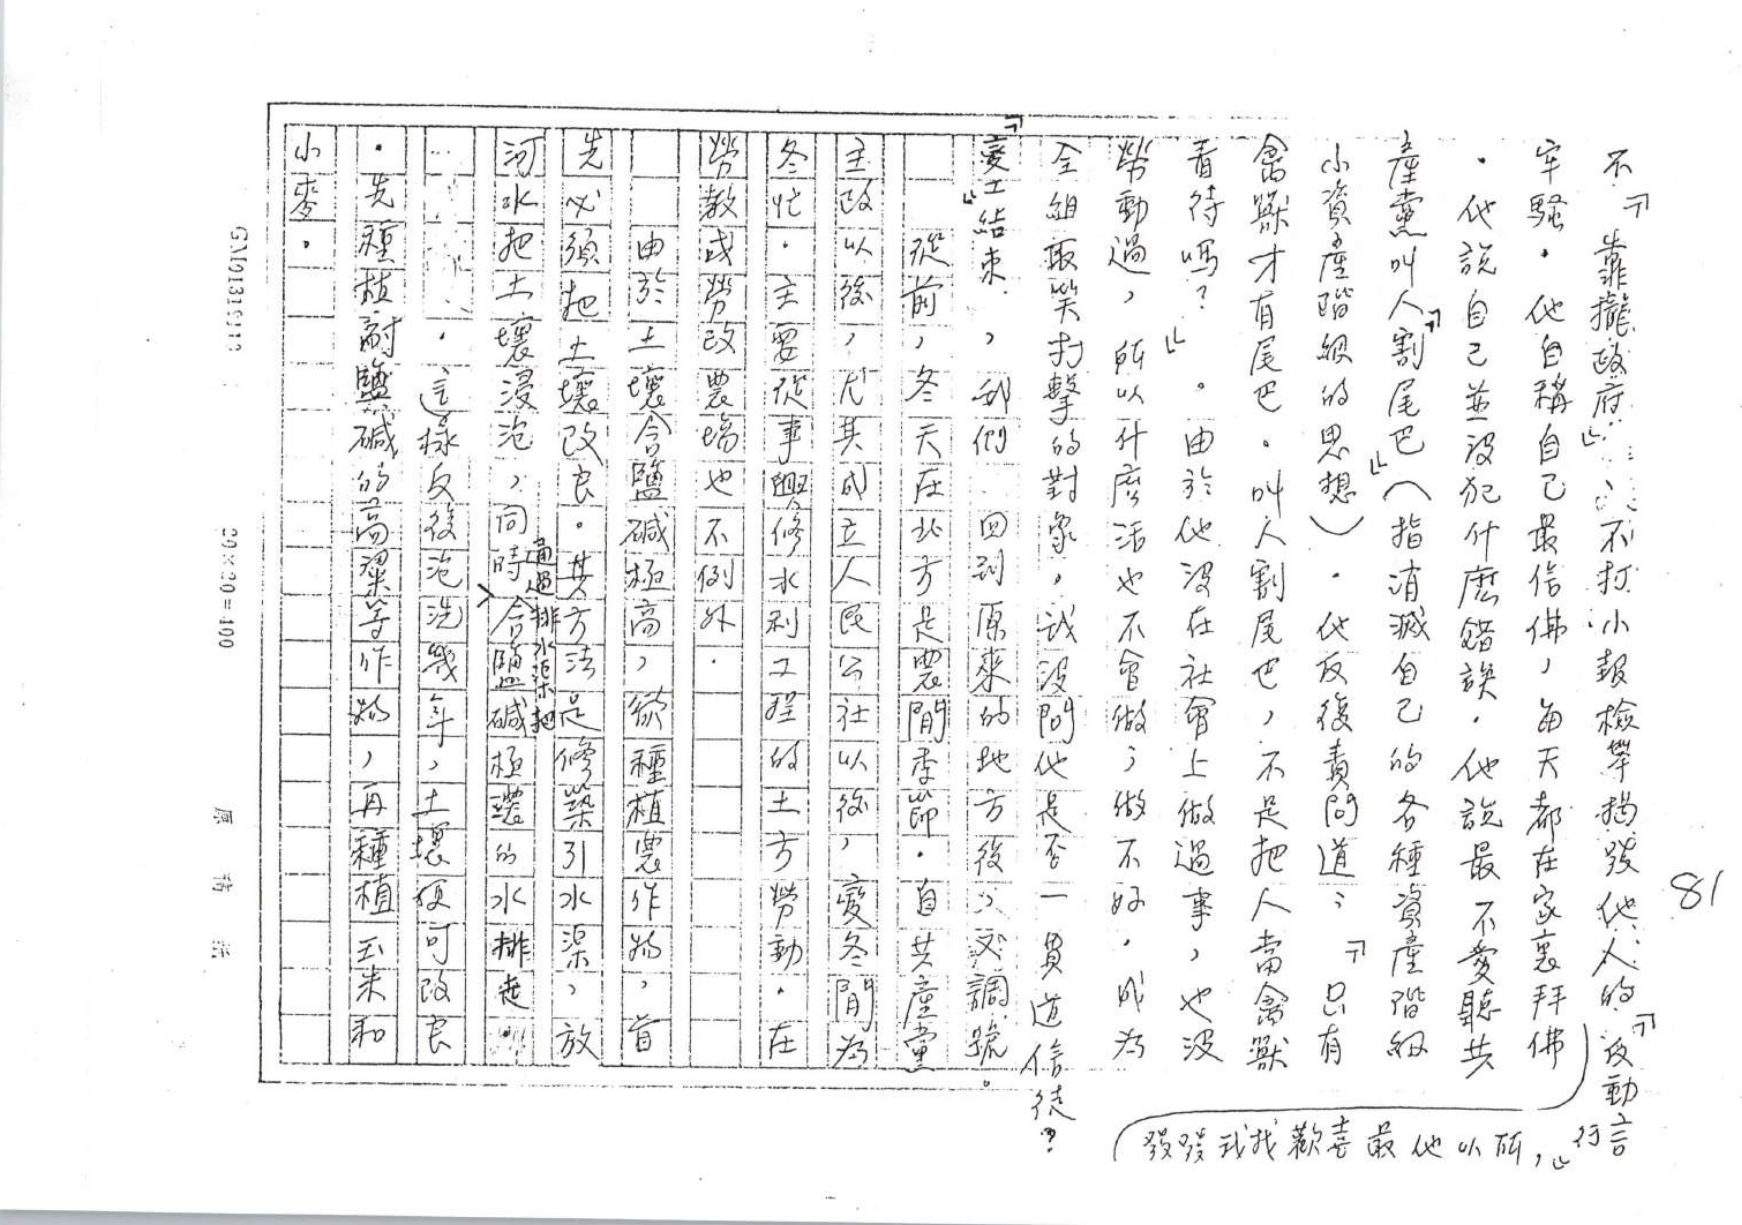 81
不「靠攏政府」、不打小報檢舉揭發他人的「反動言
行」,所以他最喜歡找我發發
牢騷。他自稱自己最信佛,每天都在家裏拜佛
。他說自己並沒犯什麽錯誤。他說最不愛聽共
產黨叫人「割尾巴」(指消滅自己的各種資產階級
小資產階級的思想)。他反復責問道:「只有
禽獸才有尾巴。叫人割尾巴,不是把人當禽獸
看待嗎?」。由於他沒在社會上做過事,也沒
勞動過,所以什麽活也不會做;做不好。成為
全組取笑打擊的對象。我沒問他是否一貫道信徒?
「變工」結束,我們回到原來的地方後,又調號。
從前,冬天在北方是農閒季節。自共產黨
主政以後,尤其成立人民公社以後,變冬閒為
冬忙。主要從事興修水利工程的土方勞動。在
勞教或勞改農場也不例外。
由於土壤含鹽碱極高,欲種植農作物,首
先必須把土壤改良。其方法是修築引水渠,放
河水把土壤浸泡,同時通過排水渠把含鹽碱極濃的水排走。
。這樣反復泡洗幾年,土壤便可改良
。先種植耐鹽碱的高粱等作物,再種植玉米和
小麥。
GN10131611?
20×20=400
原稿紙